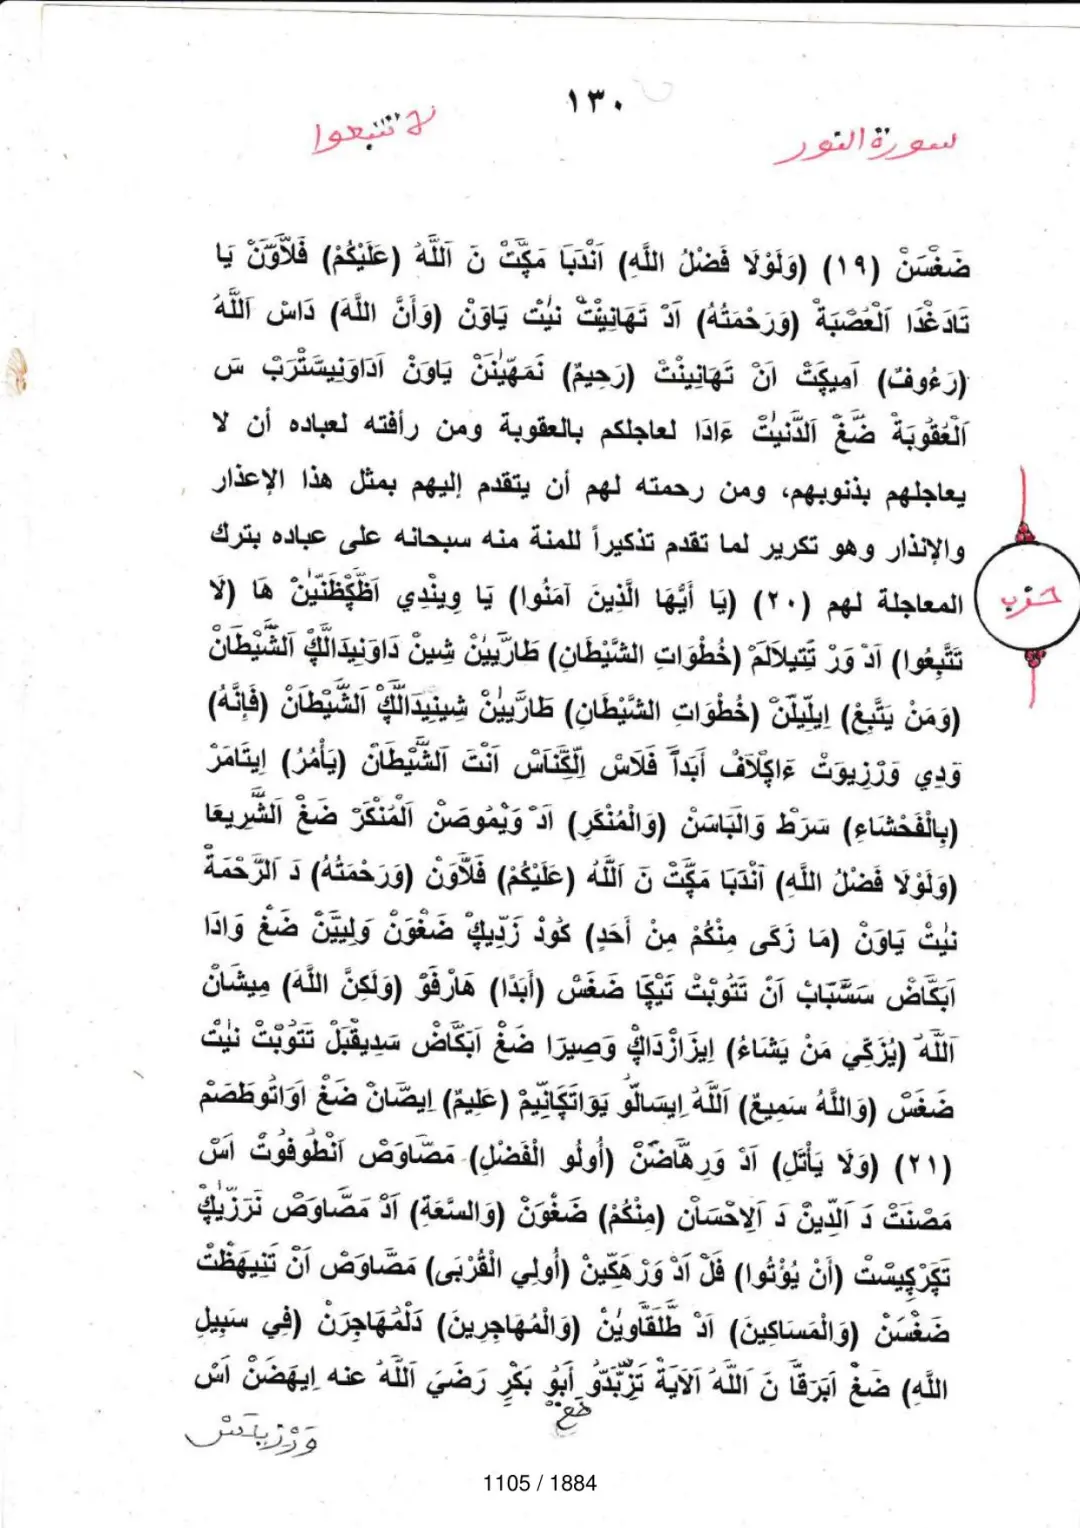 ١٣٠
سورة النور
لا تتبعوا
ضَغْسَنْ (١٩) (وَلَوْلَا فَضْلُ اللَّهِ) اَنْدَبَا مَكَّتْ نَ اَللَّهْ (عَلَيْكُمْ) فَلَّاوَنْ يَا
تَادَغْدَا اَلْعُصْبَةْ (وَرَحْمَتُهُ) اَدْ تَهَانِينْتْ نيْتْ يَاوَنْ (وَأَنَّ اللَّهَ) دَاسْ اَللَّهْ
(رَءُوفٌ) اَمِيكَّتْ اَنْ تَهَانِينْتْ (رَحِيمٌ) نَمَهِّيْنَنْ يَاوَنْ اَدَاوَنِيسَّتْرَبْ سَ
اَلْعُقُوبَةْ ضَغْ اَلدَّنيْتْ ءَادَا لعاجلكم بالعقوبة ومن رأفته لعباده أن لا
يعاجلهم بذنوبهم، ومن رحمته لهم أن يتقدم إليهم بمثل هذا الإعذار
والإنذار وهو تكرير لما تقدم تذكيراً للمنة منه سبحانه على عباده بترك
المعاجلة لهم (٢٠) (يَا أَيُّهَا الَّذِينَ آمَنُوا) يَا وِينْدِي هَا (لَا
حزب
تَتَّبِعُوا) اَدْ وَرْ تَتِيلَالَمْ (خُطُوَاتِ الشَّيْطَانِ) طَارِيِيْنْ شِينْ دَاوَنِيدَالَّكْ اَلشَّيْطَانْ
(وَمَنْ يَتَّبِعْ) اِيلِّيلَنْ (خُطُوَاتِ الشَّيْطَانِ) طَارِيِيْنْ شِينِيدَالَّكْ اَلشَّيْطَانْ (فَإِنَّهُ)
وَدِي وَرْزِيوَتْ ءَاكِلَافْ أَبَداً فَلَاسْ اِلْكَنَاسْ اَنْتَ اَلشَّيْطَانْ (يَأْمُرُ) اِيتَامَرْ
(بِالْفَحْشَاءِ) سَرَطْ وَالْبَاسَنْ (وَالْمُنْكَرِ) اَدْ وَيْمُوصَنْ اَلْمُنْكَرْ ضَغْ اَلشَّرِيعَا
(وَلَوْلَا فَضْلُ اللَّهِ) اَنْدَبَا مَكَّتْ نَ اَللَّهْ (عَلَيْكُمْ) فَلَّاوَنْ (وَرَحْمَتُهُ) دَ اَلرَّحْمَةْ
نيْتْ يَاوَنْ (مَا زَكَى مِنْكُمْ مِنْ أَحَدٍ) كُودْ زَدِّيكْ ضَغْوَنْ وَلِييَّنْ ضَغْ وَادَا
اَبَكَّاضْ سَسَّبَابْ اَنْ تَتُوبْتْ تَيْكَا ضَغْسْ (أَبَدًا) هَارْفَوْ (وَلَكِنَّ اللَّهَ) مِيشَانْ
اَللَّهْ (يُزَكِّي مَنْ يَشَاءُ) اِيزَازْدَاكْ وَصِيرَا ضَغْ اَبَكَّاضْ سَدِيقْبَلْ تَتُوبْتْ نيْتْ
ضَغْسْ (وَاللَّهُ سَمِيعٌ) اَللَّهْ اِيسَالُّو يَوَاتَكَانِّيمْ (عَلِيمٌ) اِيصَّانْ ضَغْ اَوَاتُوطَصَمْ
(٢١) (وَلَا يَأْتَلِ) اَدْ وَرِهَاضَنْ (أُولُو الْفَضْلِ) مَصَّاوَصْ اَنْطُوفُوتْ اَسْ
مَصْنَتْ دَ اَلدِّينْ دَ اَلِاحْسَانْ (مِنْكُمْ) ضَغْوَنْ (وَالسَّعَةِ) اَدْ مَصَّاوَصْ نَرَزِّيكْ
تَكَرْكِيسْتْ (أَنْ يُؤْتُوا) فَلْ اَدْ وَرْهَكِّينْ (أُولِي الْقُرْبَى) مَصَّاوَصْ اَنْ تَنِيهَظْتْ
ضَغْسَنْ (وَالْمَسَاكِينَ) اَدْ طَلَقَّاوِيْنْ (وَالْمُهَاجِرِينَ) دَلْمُهَاجِرَنْ (فِي سَبِيلِ
اللَّهِ) ضَغْ اَبَرَقَّا نَ اَللَّهْ اَلَايَةْ تَزَّبَدُّو أَبُو بَكْرٍ رَضَيَ اَللَّهُ عنه اِيهَضَنْ اَسْ
وَرْزِيَاكَسْ
1105 / 1884